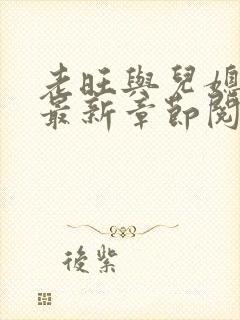 老旺與兒媳
最新章節閱
後紫